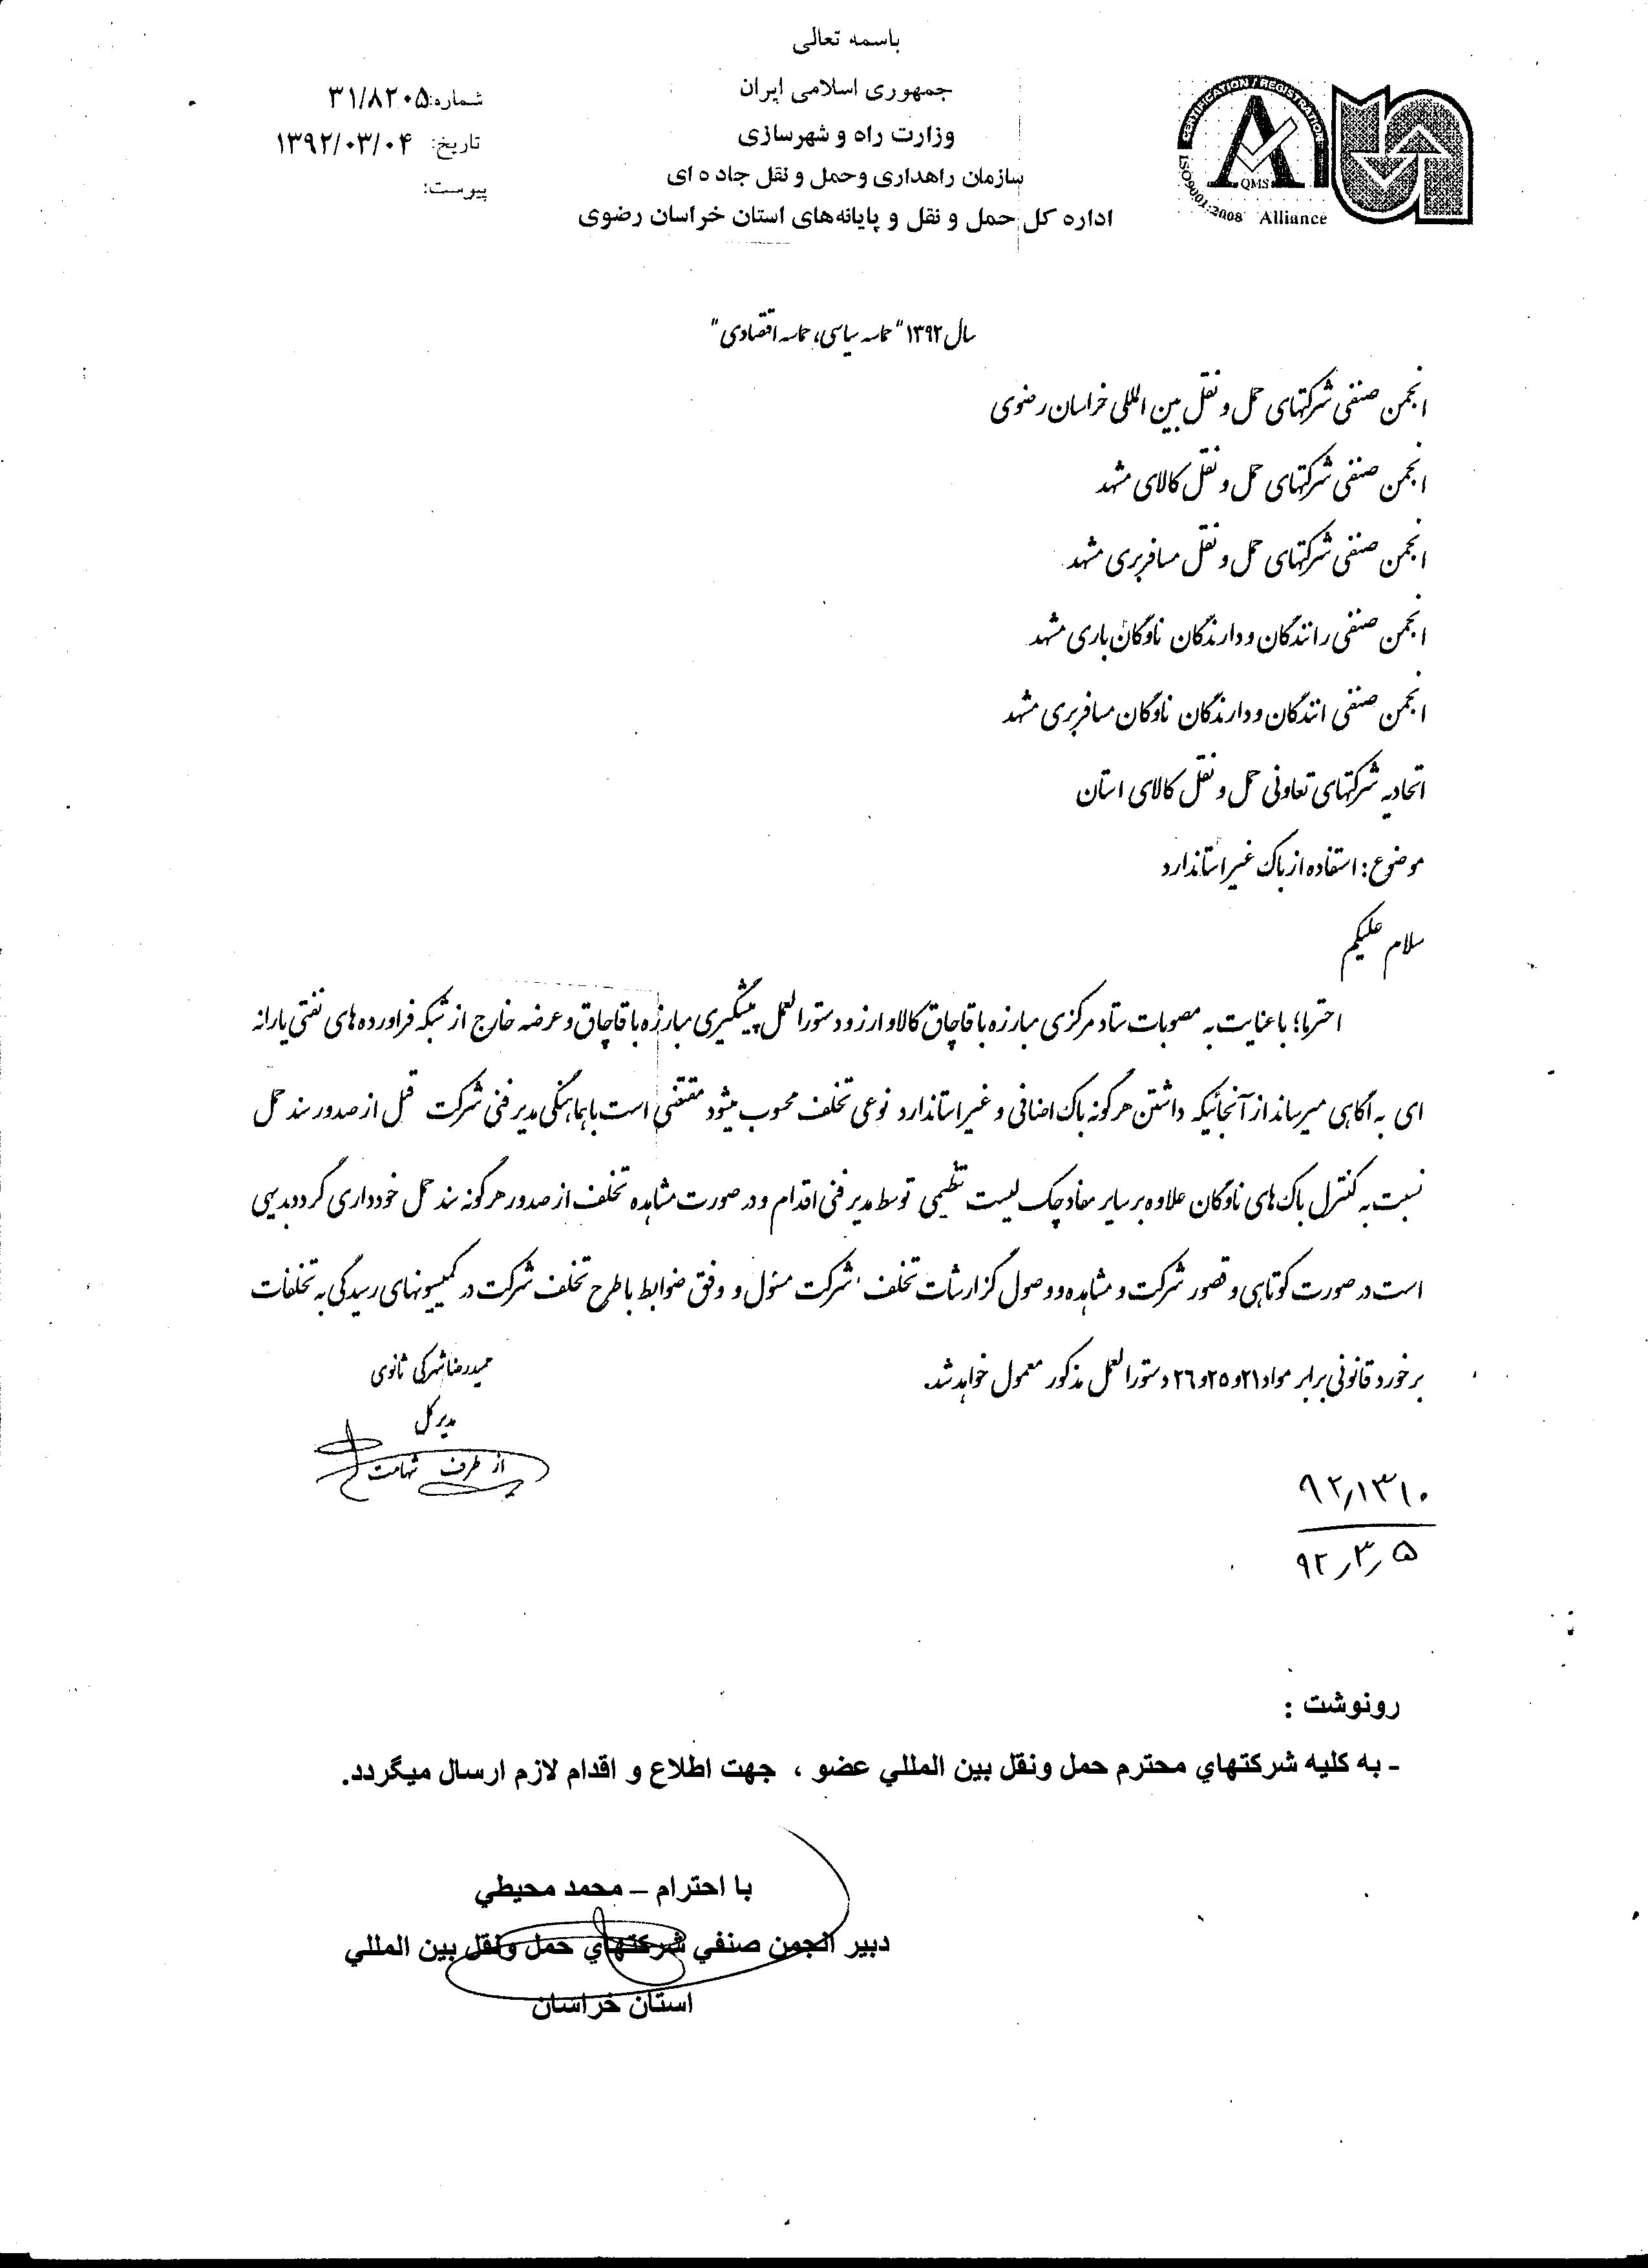 باسمه تعالی
جمهوری اسلامی ایران
وزارت راه و شهرسازی
سازمان راهداری وحمل و نقل جاده ای
اداره کل حمل و نقل و پایانه‌های استان خراسان رضوی
شماره:۳۱/۸۲۰۵
تاریخ: ۱۳۹۲/۰۳/۰۴
پیوست:
CERTIFICATION / REGISTRATION
QMS
ISO9001:2008 Alliance
سال ۱۳۹۲ "حماسه سیاسی، حماسه اقتصادی"
انجمن صنفی شرکتهای حمل و نقل بین المللی خراسان رضوی
انجمن صنفی شرکتهای حمل و نقل کالای مشهد
انجمن صنفی شرکتهای حمل و نقل مسافربری مشهد
انجمن صنفی رانندگان و دارندگان ناوگان باری مشهد
انجمن صنفی انندگان و دارندگان ناوگان مسافربری مشهد
اتحادیه شرکتهای تعاونی حمل و نقل کالای استان
موضوع: استفاده از باک غیر استاندارد
سلام علیکم
احتراما؛ با عنایت به مصوبات ستاد مرکزی مبارزه با قاچاق کالا و ارز و دستورالعمل پیشگیری مبارزه با قاچاق و عرضه خارج از شبکه فراورده های نفتی یارانه
ای به آگاهی میرساند از آنجائیکه داشتن هرگونه باک اضافی و غیر استاندارد نوعی تخلف محسوب میشود مقتضی است با هماهنگی مدیر فنی شرکت قبل از صدور سند حمل
نسبت به کنترل باک های ناوگان علاوه بر سایر مفاد چک لیست تنظیمی توسط مدیر فنی اقدام و در صورت مشاهده تخلف از صدور هرگونه سند حمل خودداری گردد بدیهی
است در صورت کوتاهی و قصور شرکت و مشاهده و وصول گزارشات تخلف شرکت مسئول و وفق ضوابط با طرح تخلف شرکت در کمیسیونهای رسیدگی به تخلفات
برخورد قانونی برابر مواد ۲۱و ۲۵و ۲۶ دستورالعمل مذکور معمول خواهد شد.
حمیدرضا شهرکی ثانوی
مدیر کل
از طرف شهامت
۹۲٫۱۳۱۰
۹۲٫۳٫۵
رونوشت :
- به کلیه شرکتهاي محترم حمل ونقل بین المللي عضو ، جهت اطلاع و اقدام لازم ارسال میگردد.
با احترام – محمد محیطي
دبیر انجمن صنفي شرکتهاي حمل ونقل بین المللي
استان خراسان